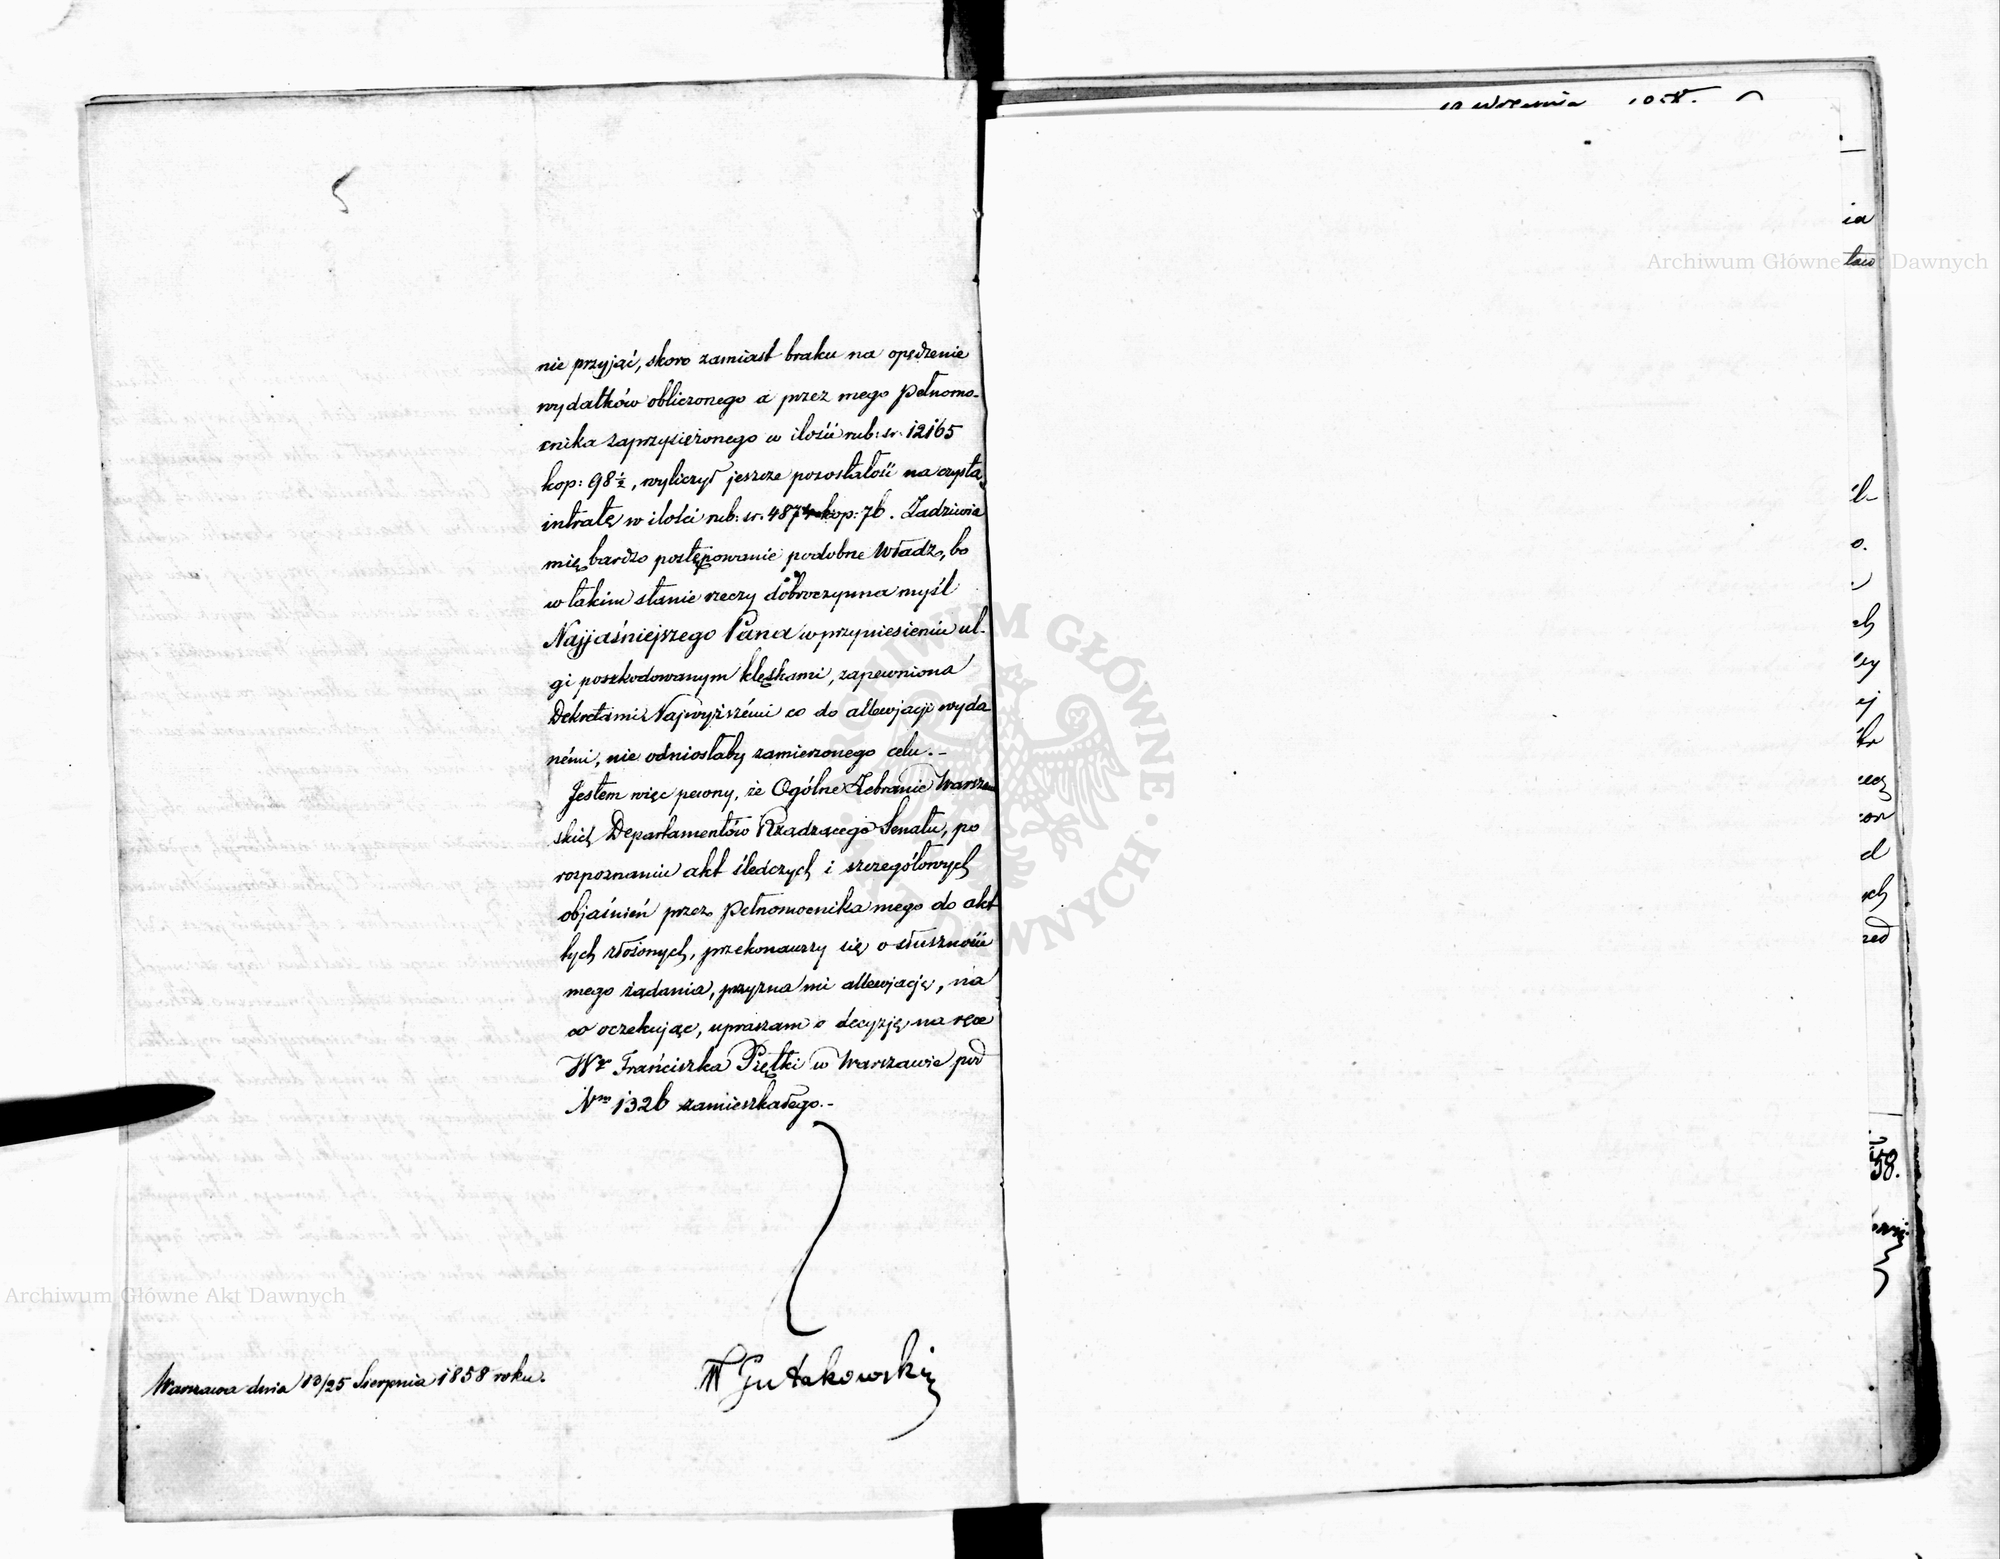 nie przyjąć, skoro zamiast braku na opędzenie
wydatków obliczonego a przez mego Pełnomo-
cnika zaprzysiężonego w ilości rub: sr. 12165
kop: 98 1/2, wyliczył jeszcze pozostałość na czystą
intratę w ilości rub: sr. 4874 kop: 76. Zadziwia
mię bardzo postępowanie podobne Władz, bo
w takim stanie rzeczy dobroczynna myśl
Najjaśniejszego Pana w przyniesieniu ul-
gi poszkodowanym klęskami, zapewniona
Dekretami Najwyższémi co do allewjacji wyda
némi, nie odniosłaby zamierzonego celu. -
Jestem więc pewny, że Ogólne Zebranie Warszaw
skich Departamentów Rządzącego Senatu, po
rozpoznaniu akt śledczych i szczegółowych
objaśnień przez Pełnomocnika mego do akt
tych złożonych, przekonawszy się o słuszności
mego żądania, przyzna mi allewjację, na
co oczekując, upraszam o decyzję na ręce
Wgo Franciszka Piętki w Warszawie pod
Nrm 1326 zamieszkałego. -
Warszawa dnia 13/25 Sierpnia 1858 roku.
W Gutakowski
Września
ia
ław
o.
ch
ey
ej
d
ych
zed
58.
Archiwum Główne Akt Dawnych
Archiwum Główne Akt Dawnych
ARCHIWUM GŁÓWNE AKT DAWNYCH